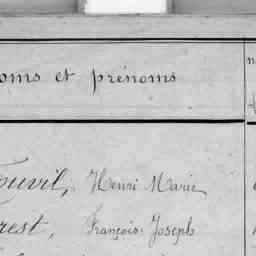 oms et prénoms
ouvil, Henri Marie
rest, François Joseph